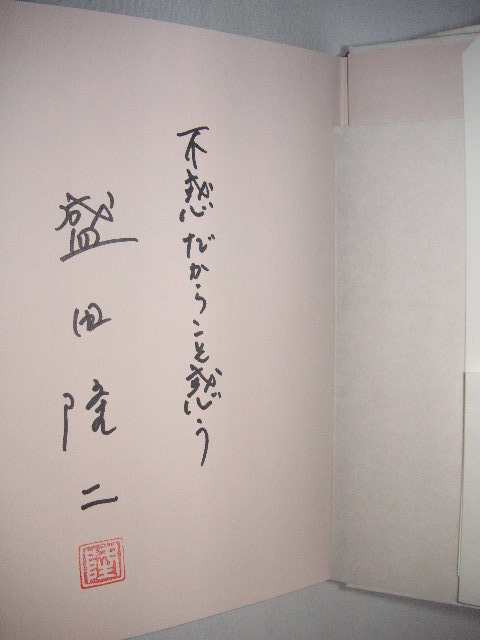 不惑だからこそ惑う
盛田隆二